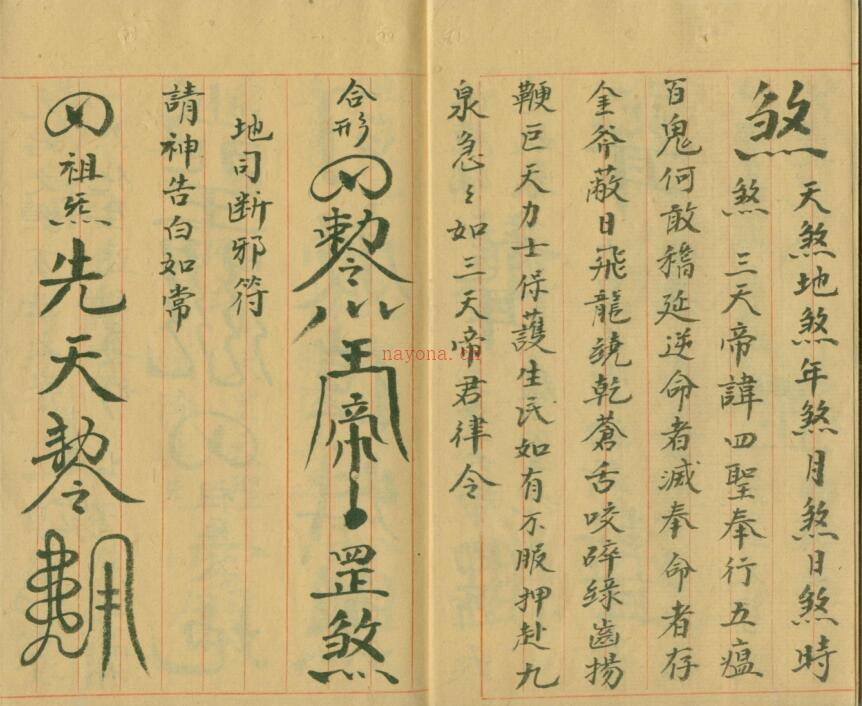 煞 天煞地煞年煞月煞日煞時
煞 三天帝諱四聖奉行五瘟
百鬼何敢稽延逆命者滅奉命者存
金斧蔽日飛龍繞乾蒼舌咬碎綠齒揚
鞭巨天力士保護生民如有不服押赴九
泉急〻如三天帝君律令
合形
敕令 八 王帝 罡煞
地司断邪符
請神告白如常
祖炁先天敕令
nayona.cn